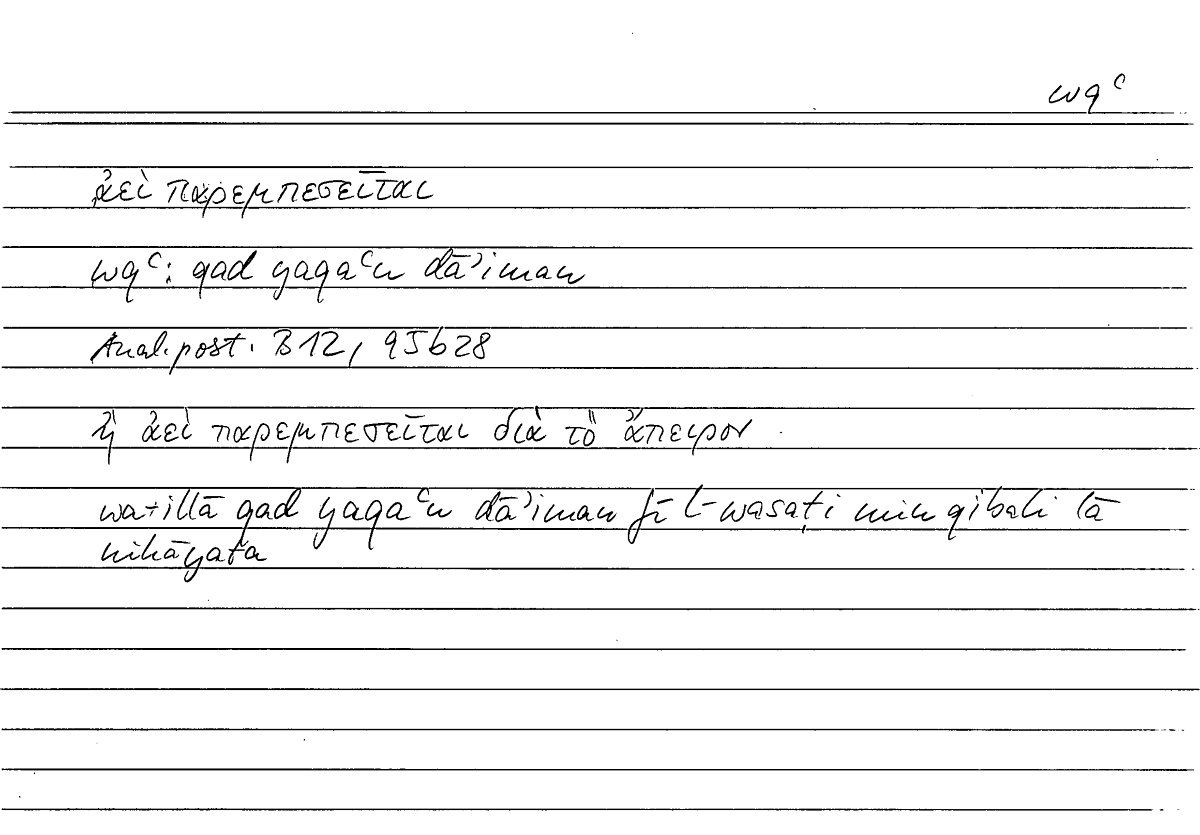 wqʿ
ἀεὶ παρεμπεσεῖται
wqʿ: qad yaqaʿu dāʾiman
Anal. post. B 12, 95b28
ἢ ἀεὶ παρεμπεσεῖται διὰ τὸ ἄπειρον.
wa-illā qad yaqaʿu dāʾiman fī l-wasaṭi min qibali lā
nihāyata